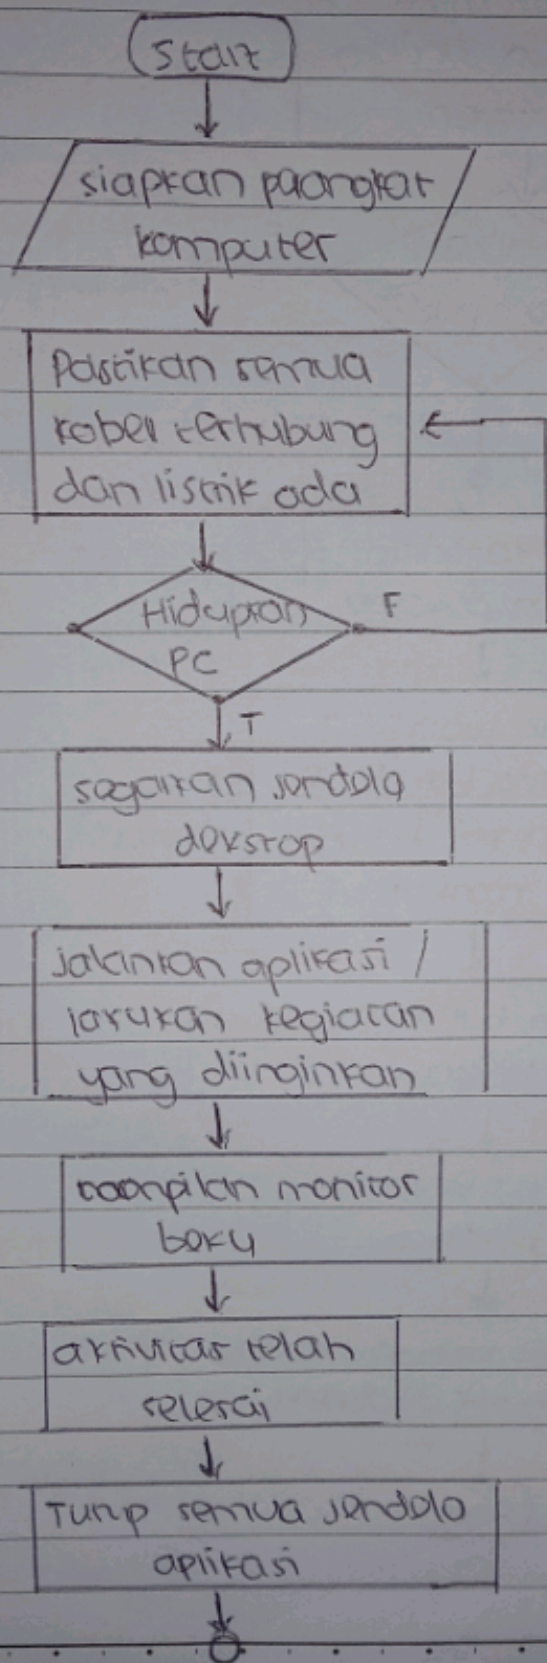 Start
siapkan paangkat
komputer
Pastikan semua
kabel terhubung
dan listrik ada
Hidupkan
PC
F
T
segarkan jendela
dekstop
jalankan aplikasi /
lakukan kegiatan
yang diinginkan
taampilan monitor
beku
aktivitas telah
selesai
Tutup semua jendela
aplikasi